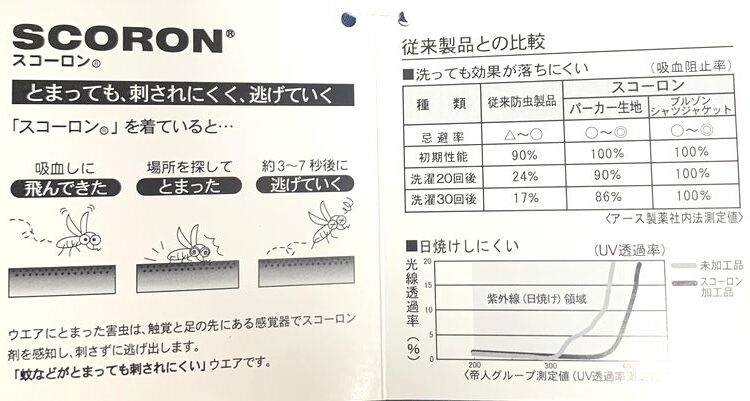 SCORON®
スコーロン®
とまっても、刺されにくく、逃げていく
「スコーロン®」を着ていると…
吸血しに
飛んできた
場所を探して
とまった
約3～7秒後に
逃げていく
ウエアにとまった害虫は、触覚と足の先にある感覚器でスコーロン
剤を感知し、刺さずに逃げ出します。
「蚊などがとまっても刺されにくい」ウエアです。
従来製品との比較
■洗っても効果が落ちにくい （吸血阻止率）
種 類 従来防虫製品 スコーロン
パーカー生地 ブルゾン シャツジャケット
忌避率 △～○ ○～◎ ○～◎
初期性能 90% 100% 100%
洗濯20回後 24% 90% 100%
洗濯30回後 17% 86% 100%
〈アース製薬社内法測定値〉
■日焼けしにくい （UV透過率）
光線透過率(%)
20
15
10
5
0
紫外線（日焼け）領域
未加工品
スコーロン
加工品
200 300
〈帝人グループ測定値（UV透過率